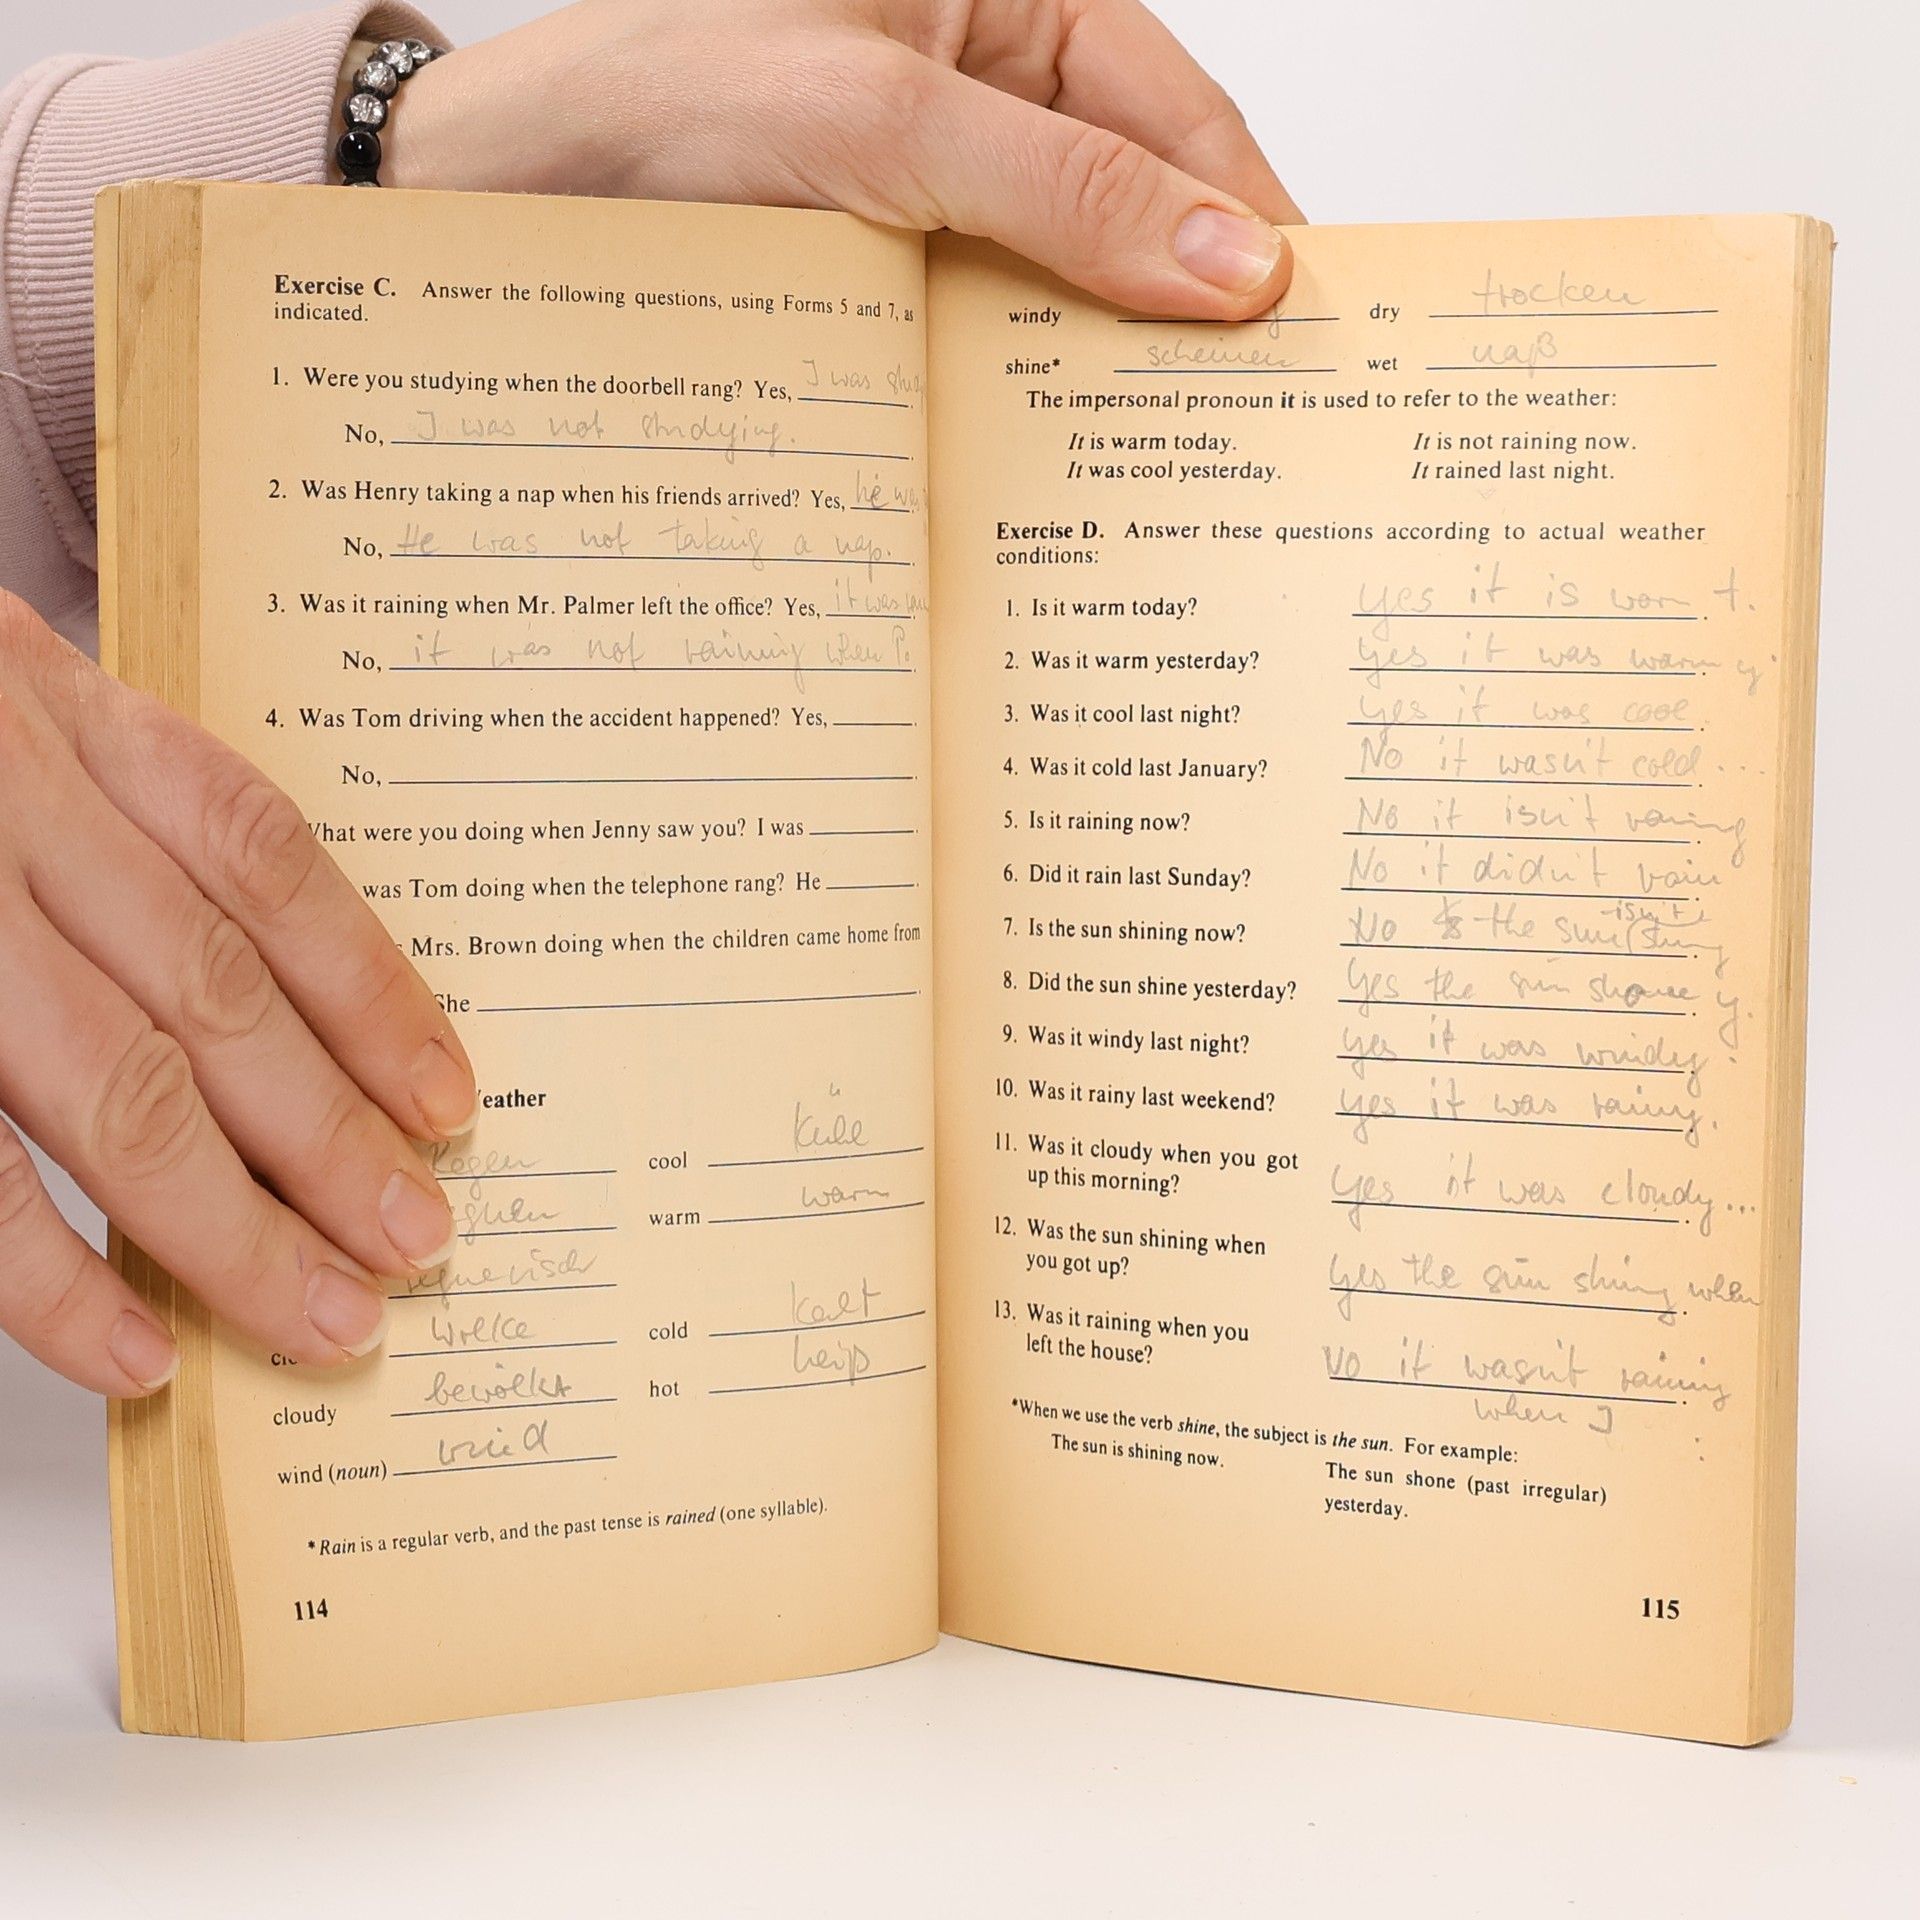 Exercise C. Answer the following questions, using Forms 5 and 7, as
indicated.
1. Were you studying when the doorbell rang? Yes, I was
No, I was not studying.
2. Was Henry taking a nap when his friends arrived? Yes, he was
No, He was not taking a nap.
3. Was it raining when Mr. Palmer left the office? Yes, it was
No, it was not raining when P.
4. Was Tom driving when the accident happened? Yes,
No,
What were you doing when Jenny saw you? I was
was Tom doing when the telephone rang? He
Mrs. Brown doing when the children came home from
She
Weather
Regen cool Kühl
warm warm
regnerisch
Wolke cold kalt
cloudy bewölkt hot heiß
wind (noun) wind
*Rain is a regular verb, and the past tense is rained (one syllable).
114
windy dry trocken
shine* scheinen wet naß
The impersonal pronoun it is used to refer to the weather:
It is warm today. It is not raining now.
It was cool yesterday. It rained last night.
Exercise D. Answer these questions according to actual weather
conditions:
1. Is it warm today? yes it is worm t.
2. Was it warm yesterday? yes it was warm y.
3. Was it cool last night? yes it was cool.
4. Was it cold last January? No it wasn't cold...
5. Is it raining now? No it isn't raining
6. Did it rain last Sunday? No it didn't rain
7. Is the sun shining now? No the sun isn't shining
8. Did the sun shine yesterday? Yes the sun shone y.
9. Was it windy last night? yes it was windy.
10. Was it rainy last weekend? yes it was rainy.
11. Was it cloudy when you got
up this morning? yes it was cloudy...
12. Was the sun shining when
you got up? yes the sun shining when
13. Was it raining when you
left the house? NO it wasn't raining
when I
*When we use the verb shine, the subject is the sun. For example:
The sun is shining now. The sun shone (past irregular)
yesterday.
115